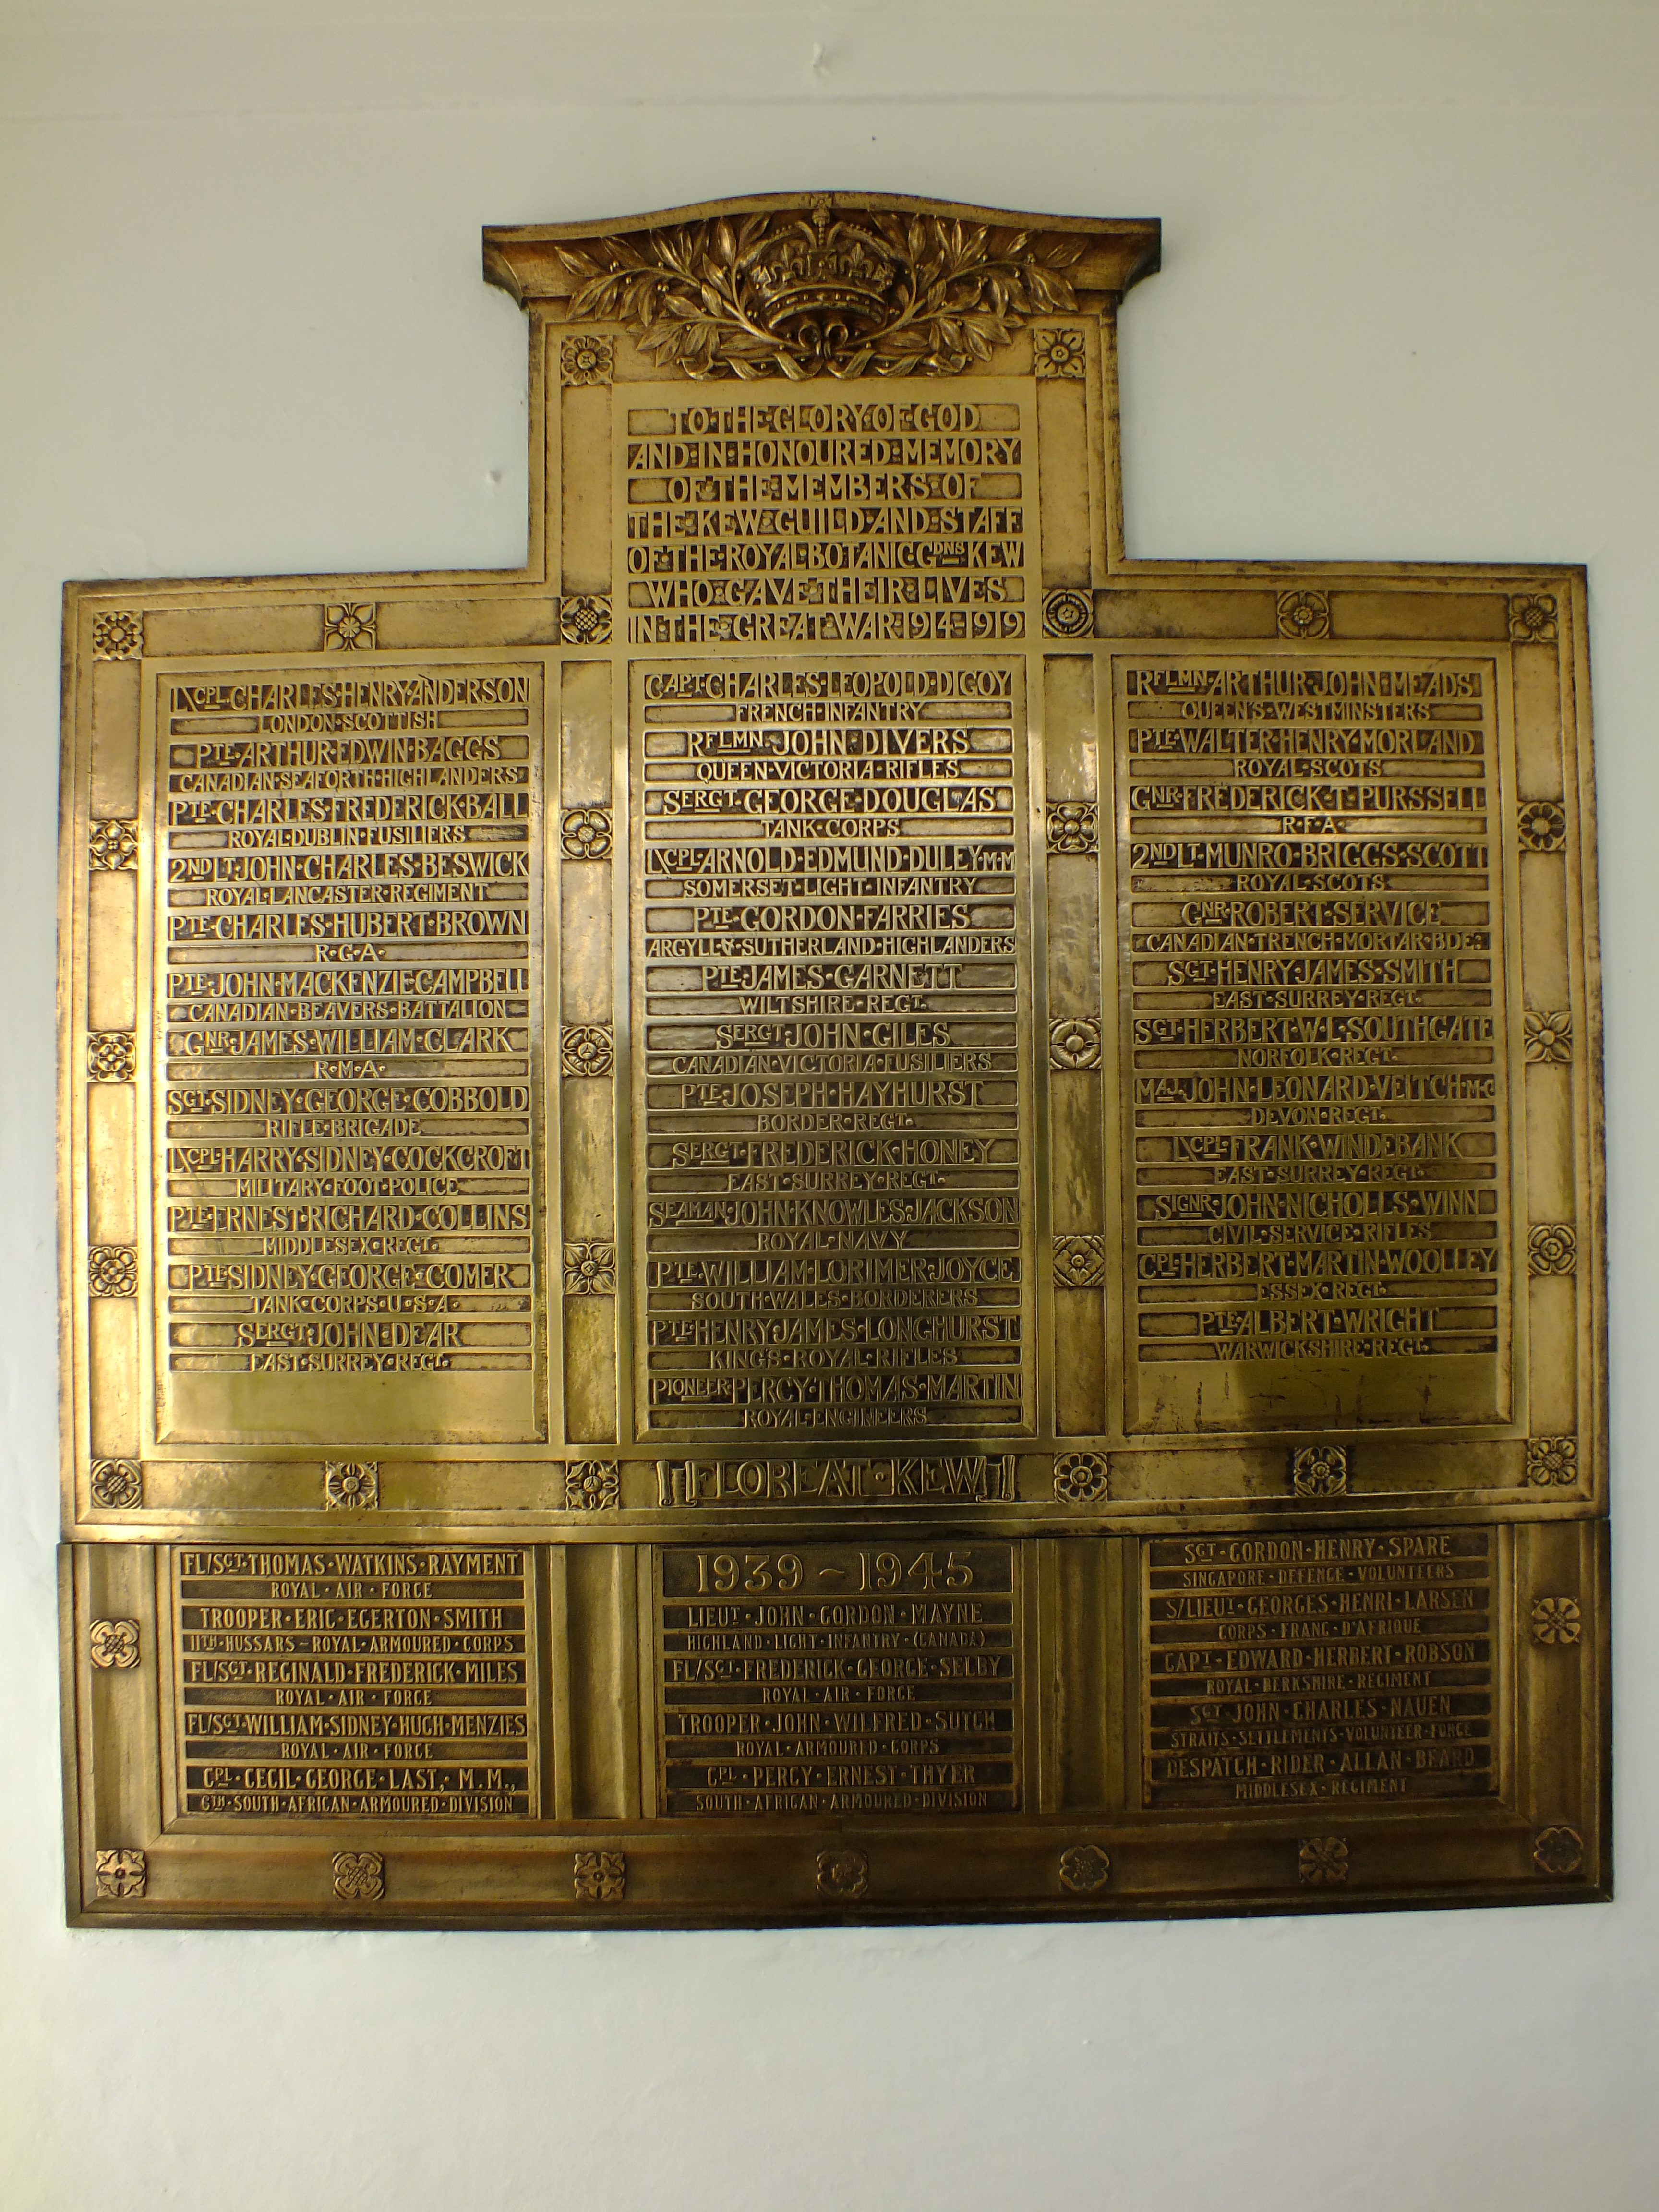 TO·THE·GLORY·OF·GOD
AND·IN·HONOURED·MEMORY
OF·THE·MEMBERS·OF
THE·KEW·GUILD·AND·STAFF
OF·THE·ROYAL·BOTANIC·GDNS·KEW
WHO·GAVE·THEIR·LIVES
IN·THE·GREAT·WAR·1914-1919
L/CPL·CHARLES·HENRY·ANDERSON
LONDON·SCOTTISH
PTE·ARTHUR·EDWIN·BAGGS
CANADIAN·SEAFORTH·HIGHLANDERS
PTE·CHARLES·FREDERICK·BALL
ROYAL·DUBLIN·FUSILIERS
2ND LT·JOHN·CHARLES·BESWICK
ROYAL·LANCASTER·REGIMENT
PTE·CHARLES·HUBERT·BROWN
R·G·A·
PTE·JOHN·MACKENZIE·CAMPBELL
CANADIAN·BEAVERS·BATTALION
GNR·JAMES·WILLIAM·CLARK
R·M·A·
SGT·SIDNEY·GEORGE·COBBOLD
RIFLE·BRIGADE
L/CPL·HARRY·SIDNEY·COCKCROFT
MILITARY·FOOT·POLICE
PTE·ERNEST·RICHARD·COLLINS
MIDDLESEX·REGT.
PTE·SIDNEY·GEORGE·COMER
TANK·CORPS·U·S·A·
SERGT·JOHN·DEAR
EAST·SURREY·REGT.
CAPT·CHARLES·LEOPOLD·DIGOY
FRENCH·INFANTRY
RFLMN·JOHN·DIVERS
QUEEN·VICTORIA·RIFLES
SERGT·GEORGE·DOUGLAS
TANK·CORPS
L/CPL·ARNOLD·EDMUND·DULEY·M·M
SOMERSET·LIGHT·INFANTRY
PTE·GORDON·FARRIES
ARGYLL·&·SUTHERLAND·HIGHLANDERS
PTE·JAMES·GARNETT
WILTSHIRE·REGT.
SERGT·JOHN·GILES
CANADIAN·VICTORIA·FUSILIERS
PTE·JOSEPH·HAYHURST
BORDER·REGT.
SERGT·FREDERICK·HONEY
EAST·SURREY·REGT.
SEAMAN·JOHN·KNOWLES·JACKSON
ROYAL·NAVY
PTE·WILLIAM·LORIMER·JOYCE
SOUTH·WALES·BORDERERS
PTE·HENRY·JAMES·LONGHURST
KING'S·ROYAL·RIFLES
PIONEER·PERCY·THOMAS·MARTIN
ROYAL·ENGINEERS
RFLMN·ARTHUR·JOHN·MEADS
QUEEN'S·WESTMINSTERS
PTE·WALTER·HENRY·MORLAND
ROYAL·SCOTS
GNR·FREDERICK·T·PURSSELL
R·F·A·
2ND LT·MUNRO·BRIGGS·SCOTT
ROYAL·SCOTS
GNR·ROBERT·SERVICE
CANADIAN·TRENCH·MORTAR·BDE:
SGT·HENRY·JAMES·SMITH
EAST·SURREY·REGT.
SGT·HERBERT·W·L·SOUTHGATE
NORFOLK·REGT.
MAJ·JOHN·LEONARD·VEITCH·M·C
DEVON·REGT.
L/CPL·FRANK·WINDEBANK
EAST·SURREY·REGT.
SIGNR·JOHN·NICHOLLS·WINN
CIVIL·SERVICE·RIFLES
CPL·HERBERT·MARTIN·WOOLLEY
ESSEX·REGT.
PTE·ALBERT·WRIGHT
WARWICKSHIRE·REGT.
FLOREAT·KEW
FL/SGT·THOMAS·WATKINS·RAYMENT
ROYAL·AIR·FORCE
TROOPER·ERIC·EGERTON·SMITH
11TH·HUSSARS~ROYAL·ARMOURED·CORPS
FL/SGT·REGINALD·FREDERICK·MILES
ROYAL·AIR·FORCE
FL/SGT·WILLIAM·SIDNEY·HUGH·MENZIES
ROYAL·AIR·FORCE
CPL·CECIL·GEORGE·LAST, M.M.,
6TH·SOUTH·AFRICAN·ARMOURED·DIVISION
1939 ~ 1945
LIEUT·JOHN·GORDON·MAYNE
HIGHLAND·LIGHT·INFANTRY·(CANADA)
FL/SGT·FREDERICK·GEORGE·SELBY
ROYAL·AIR·FORCE
TROOPER·JOHN·WILFRED·SUTCH
ROYAL·ARMOURED·CORPS
CPL·PERCY·ERNEST·THYER
SOUTH·AFRICAN·ARMOURED·DIVISION
SGT·GORDON·HENRY·SPARE
SINGAPORE·DEFENCE·VOLUNTEERS
S/LIEUT·GEORGES·HENRI·LARSEN
CORPS·FRANC·D'AFRIQUE
CAPT·EDWARD·HERBERT·ROBSON
ROYAL·BERKSHIRE·REGIMENT
SGT·JOHN·CHARLES·NAUEN
STRAITS·SETTLEMENTS·VOLUNTEER·FORCE
DESPATCH·RIDER·ALLAN·BEARD
MIDDLESEX·REGIMENT